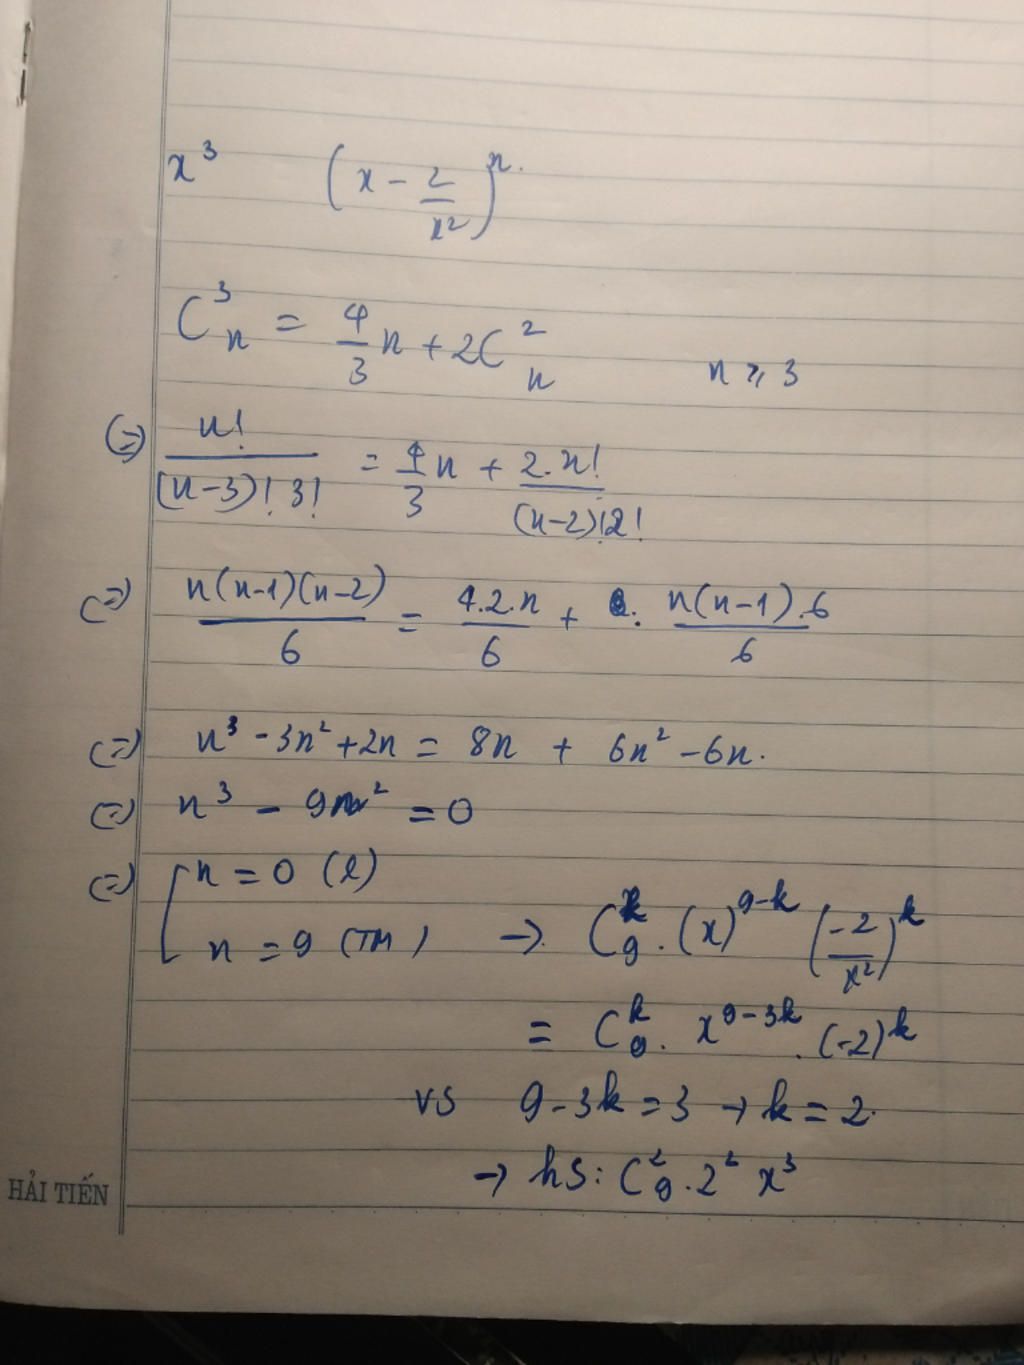 x³ (x - 2/x²)ⁿ.
C³ₙ = 4/3 n + 2C²ₙ n ⩾ 3
(=) n!/((n-3)! 3!) = 4/3 n + 2.n!/((n-2)!2!)
(=) n(n-1)(n-2)/6 = 4.2.n/6 + . n(n-1).6/6
(=) n³ - 3n² + 2n = 8n + 6n² - 6n.
(=) n³ - 9n² = 0
(=) [ n = 0 (l)
n = 9 (TM) → C₉ᵏ . (x)⁹⁻ᵏ (-2/x²)ᵏ
= C₉ᵏ . x⁹⁻³ᵏ . (-2)ᵏ
vs 9 - 3k = 3 → k = 2.
→ hS: C²₉ . 2² x³
HẢI TIẾN